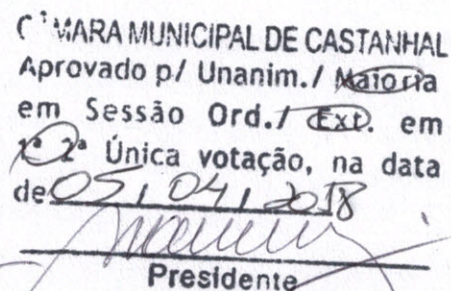 CÂMARA MUNICIPAL DE CASTANHAL
Aprovado p/ Unanim./ Maioria
em Sessão Ord./ Ext. em
1ª 2ª Única votação, na data
de 05 / 04 / 2018
Presidente